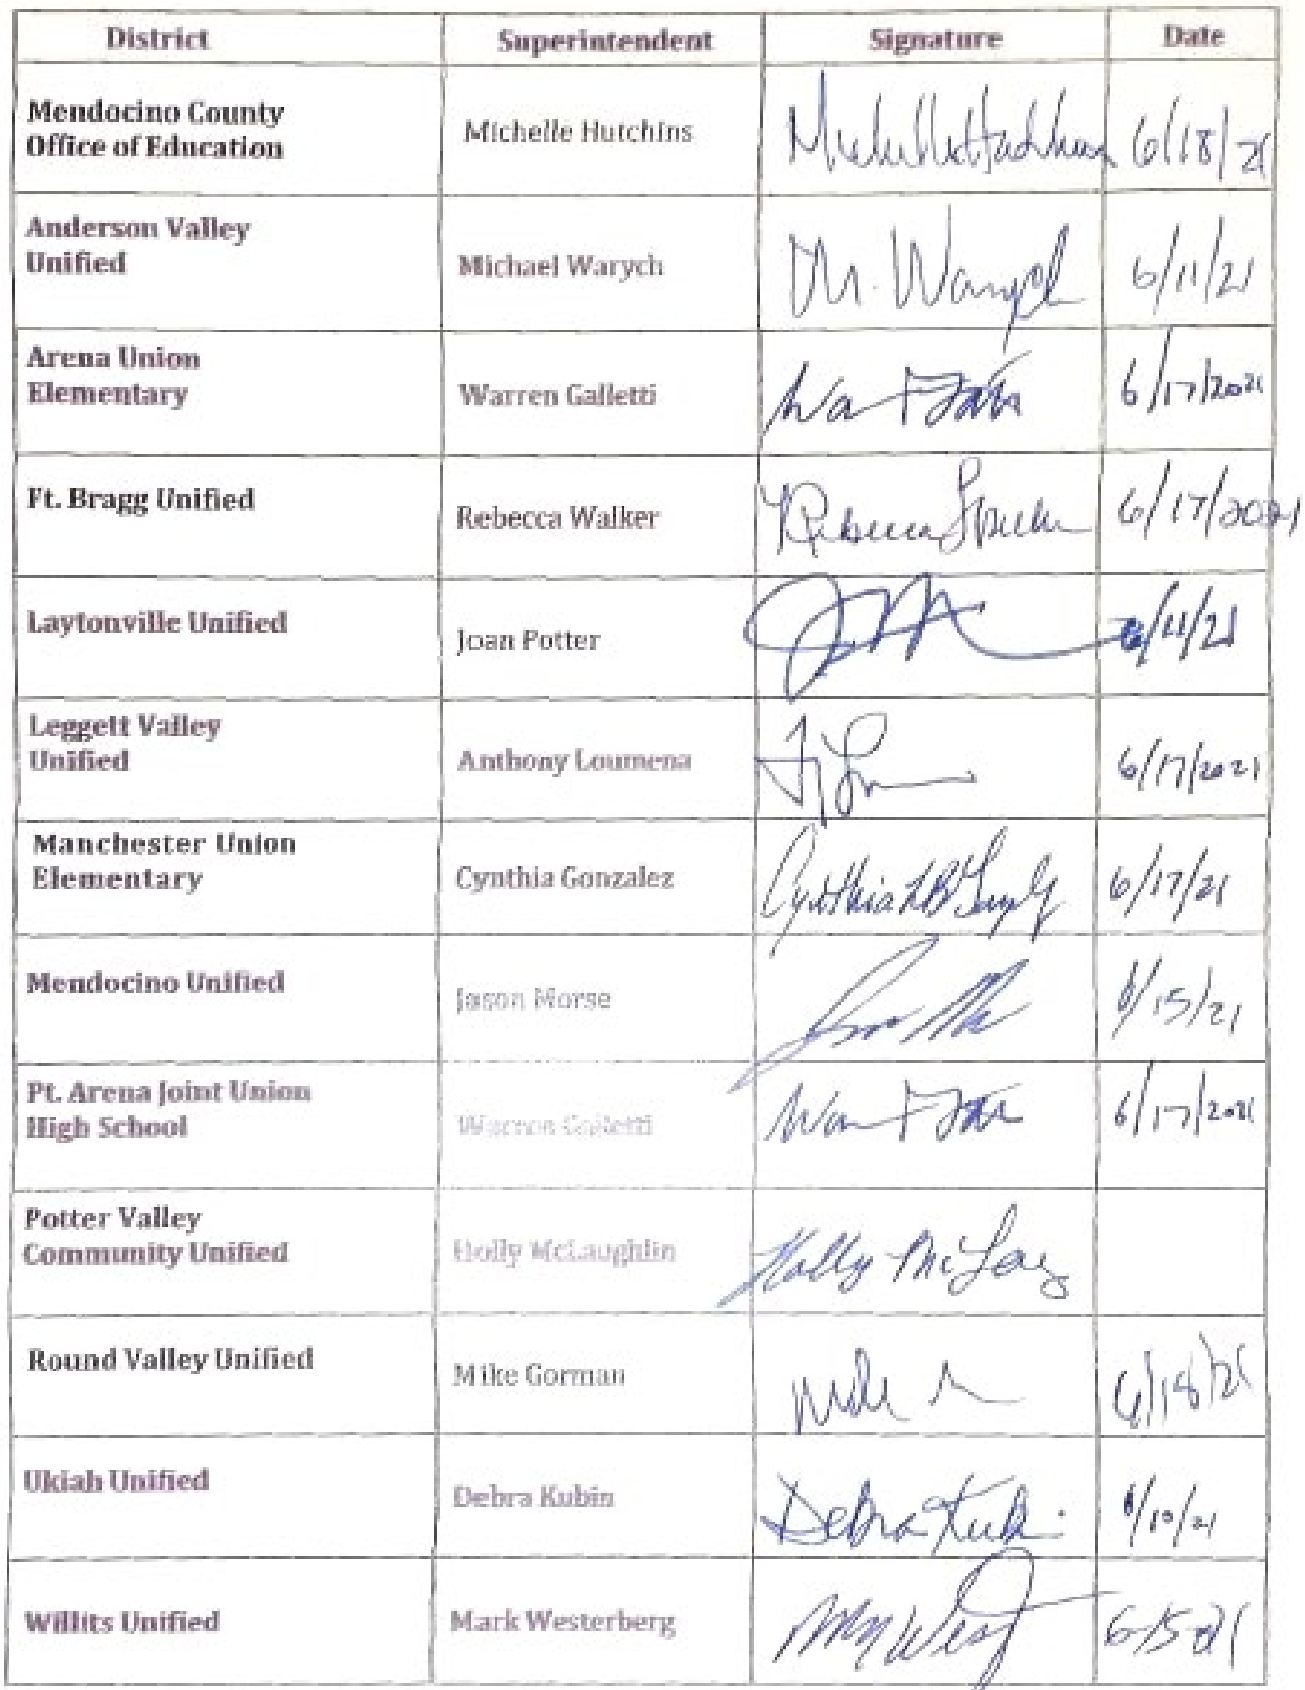 District Superintendent Signature Date
Mendocino County
Office of Education
Michelle Hutchins Michelle Hutchins 6/18/21
Anderson Valley
Unified
Michael Warych M. Warych 6/11/21
Arena Union
Elementary
Warren Galletti 6/17/2021
Ft. Bragg Unified
Rebecca Walker Rebecca Walker 6/17/2021
Laytonville Unified
Joan Potter 6/11/21
Leggett Valley
Unified
Anthony Loumena 6/17/2021
Manchester Union
Elementary
Cynthia Gonzalez Cynthia 6/17/21
Mendocino Unified
Jason Morse 6/15/21
Pt. Arena Joint Union
High School
Warren Galletti 6/17/2021
Potter Valley
Community Unified
Holly McLaughlin Holly
Round Valley Unified
Mike Gorman Mike 6/18/21
Ukiah Unified
Debra Kubin Debra Kubin 6/10/21
Willits Unified
Mark Westerberg 6-15-21